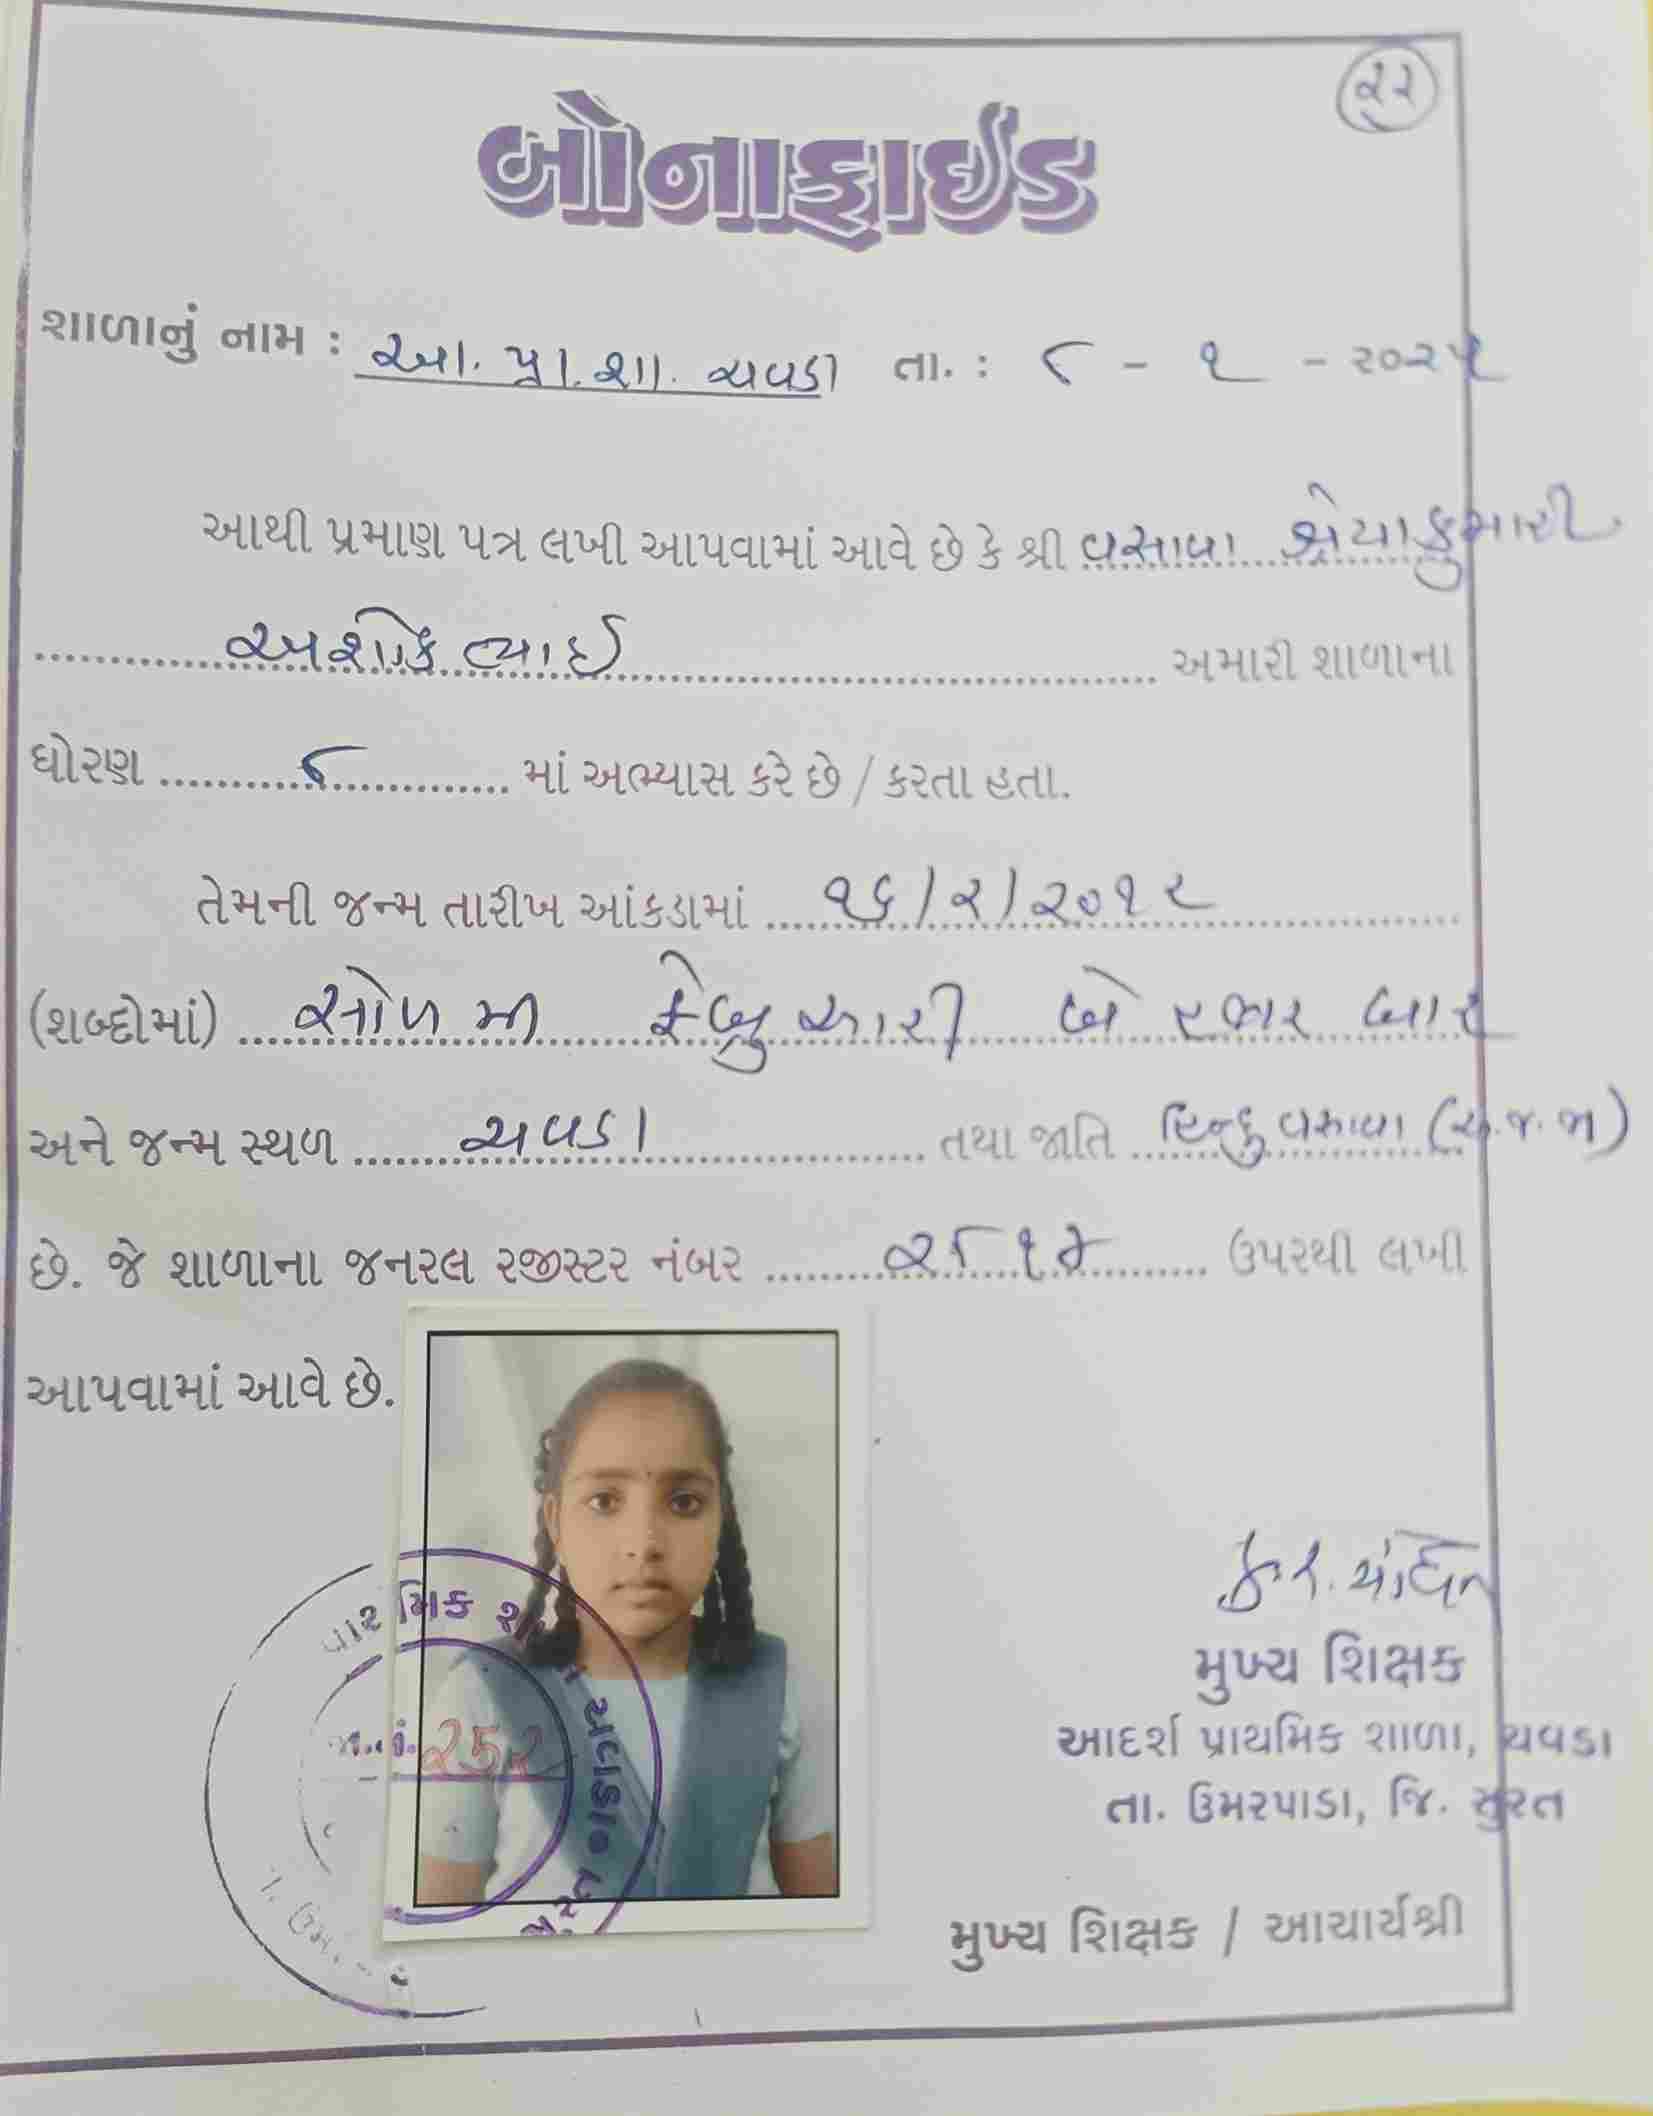 ૨૨
બોનાફાઈડ
શાળાનું નામ : આ. પ્રા. શા. ચવડા તા. : ૮ - ૧ - ૨૦૨૫
આથી પ્રમાણ પત્ર લખી આપવામાં આવે છે કે શ્રી વસાવા શ્રેયાકુમારી
અશોકભાઈ અમારી શાળાના
ધોરણ ૮ માં અભ્યાસ કરે છે / કરતા હતા.
તેમની જન્મ તારીખ આંકડામાં ૧૬/૨/૨૦૧૨
(શબ્દોમાં) સોળમી ફેબ્રુઆરી બે હજાર બાર
અને જન્મ સ્થળ ચવડા તથા જાતિ હિન્દુ વસાવા (અ.જ.જા)
છે. જે શાળાના જનરલ રજીસ્ટર નંબર ૨૮૧૪ ઉપરથી લખી
આપવામાં આવે છે.
મિક શા
252
મુખ્ય શિક્ષક
આદર્શ પ્રાથમિક શાળા, ચવડા
તા. ઉમરપાડા, જિ. સુરત
મુખ્ય શિક્ષક / આચાર્યશ્રી